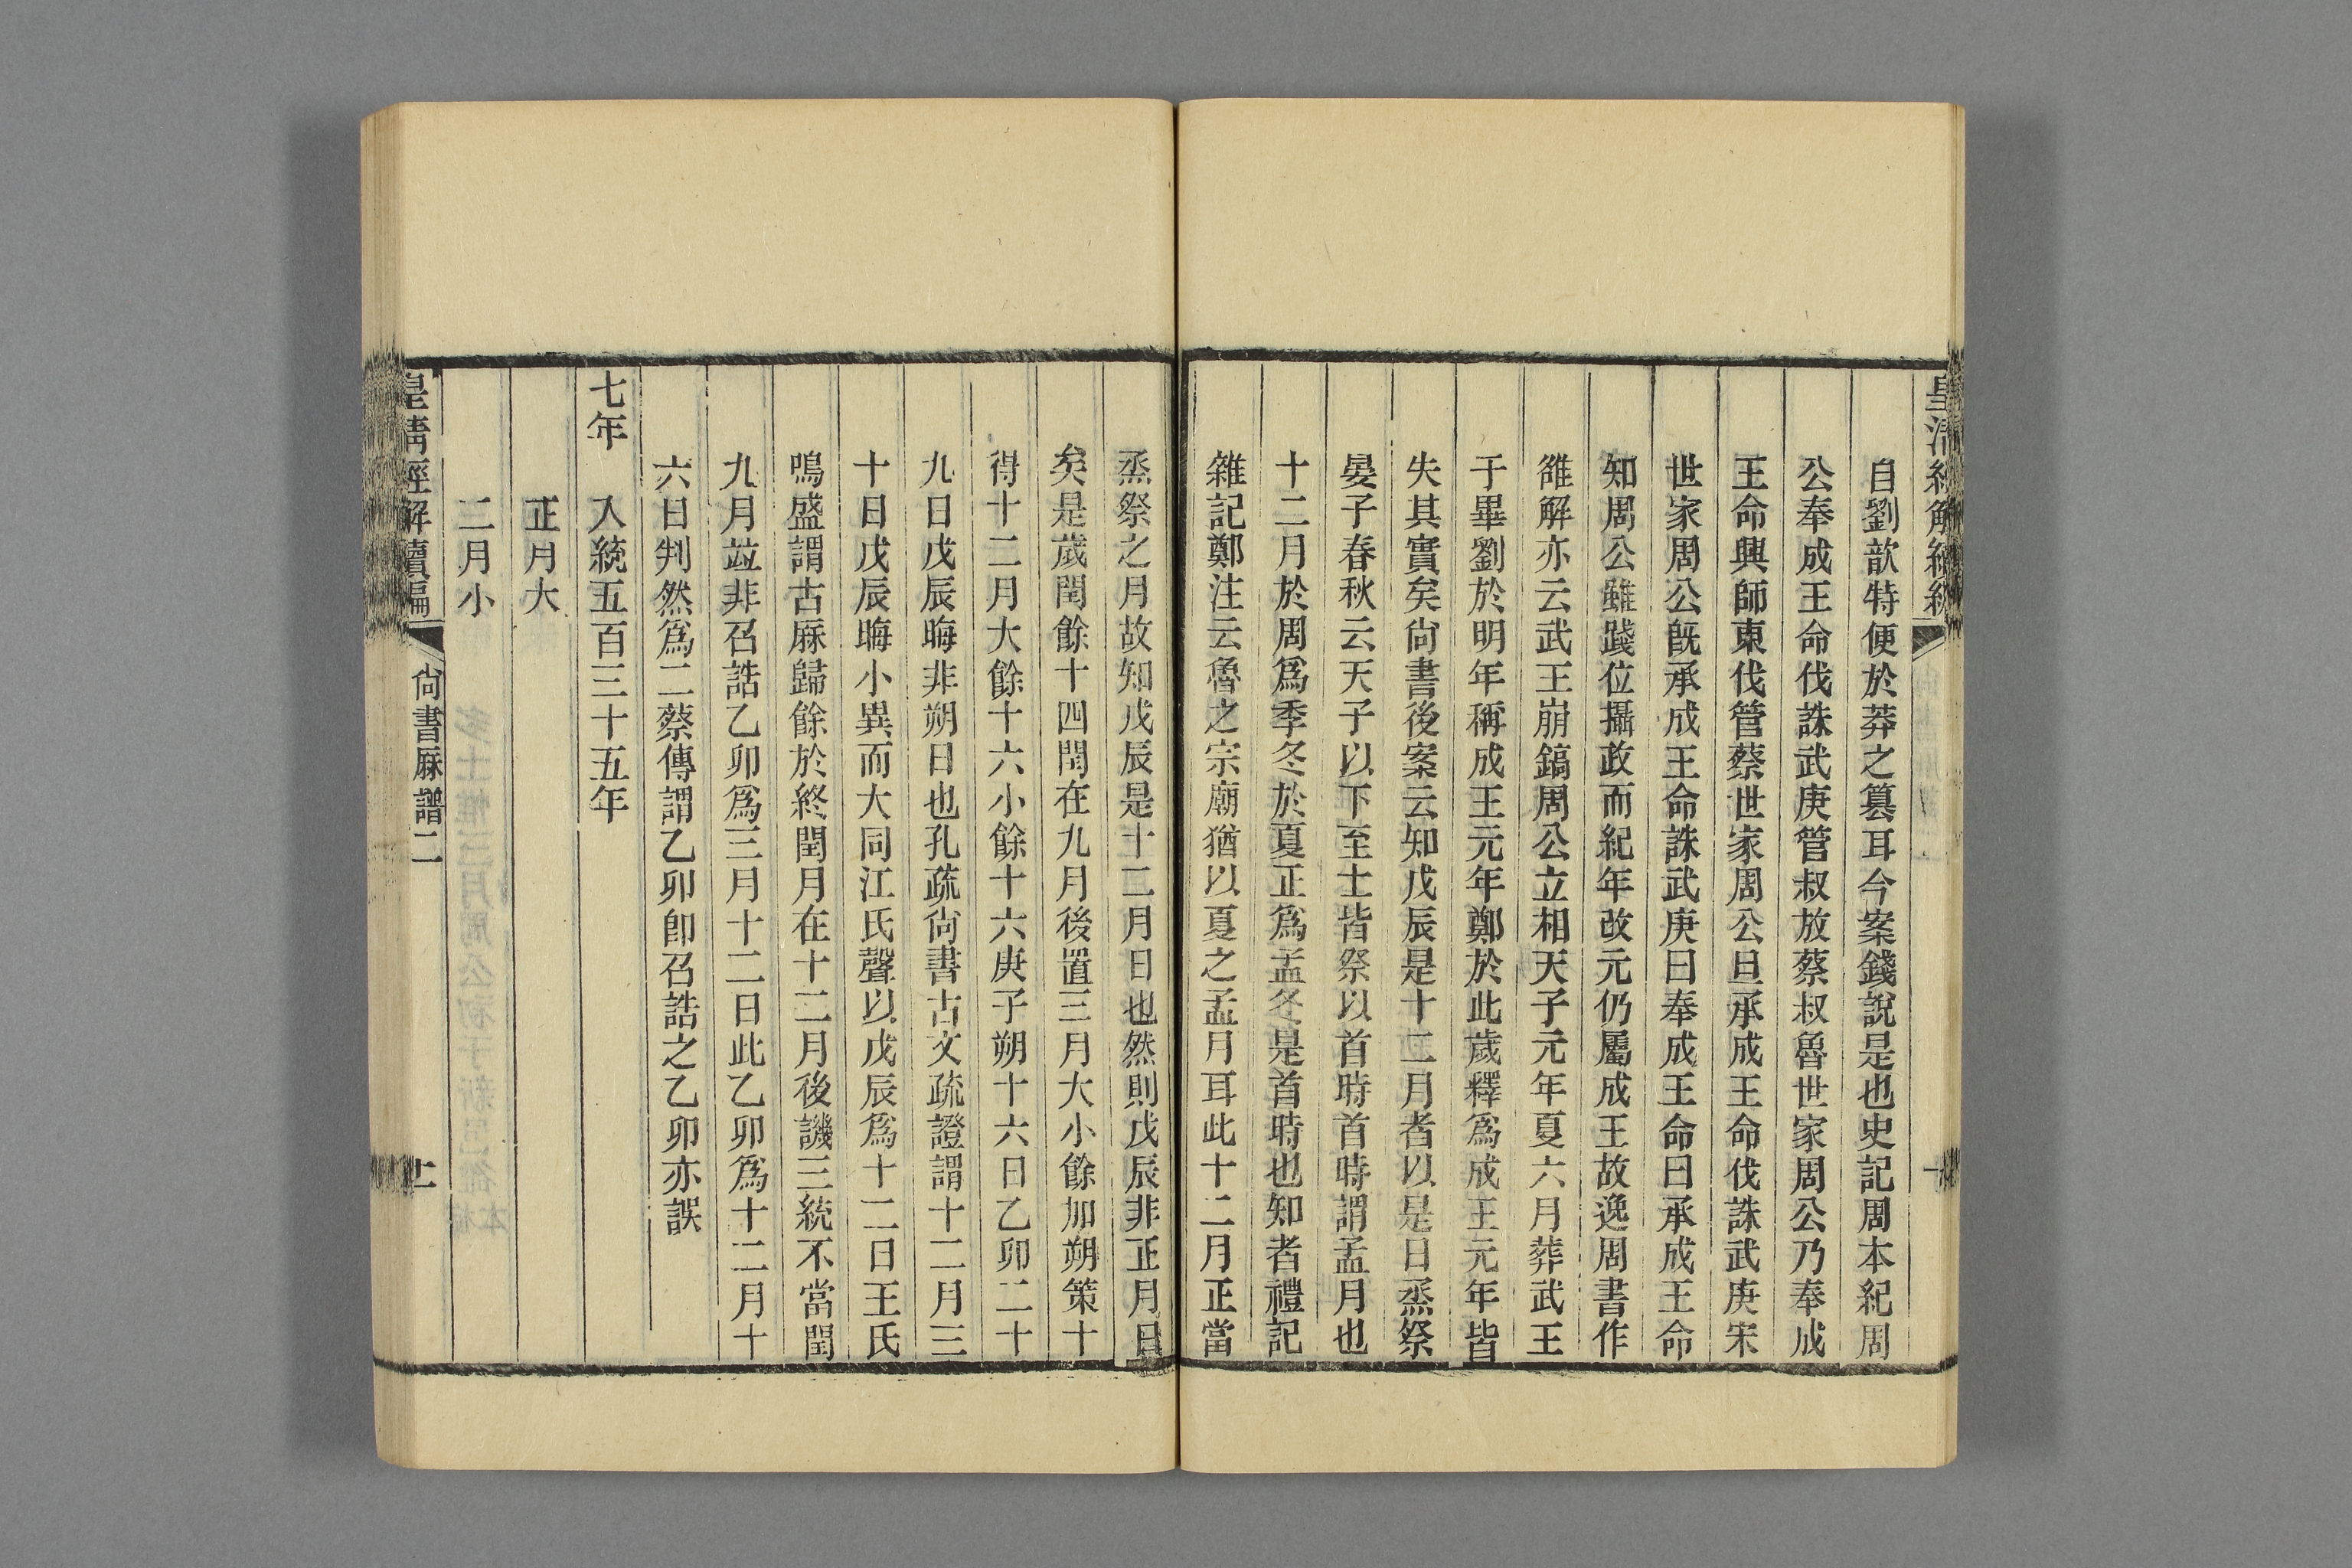 自劉歆特便於莽之簒耳今案錢說是也史記周本紀周
公奉成王命伐誅武庚管叔放蔡叔魯世家周公乃奉成
王命興師東伐管蔡世家周公旦承成王命伐誅武庚宋
世家周公旣承成王命誅武庚曰奉成王命曰承成王命
知周公雖踐位攝政而紀年改元仍屬成王故逸周書作
雒解亦云武王崩鎬周公立相天子元年夏六月葬武王
于畢劉於明年稱成王元年鄭於此歲釋爲成王元年皆
失其實矣尙書後案云知戊辰是十二月者以是日烝祭
晏子春秋云天子以下至士皆祭以首時首時謂孟月也
十二月於周爲季冬於夏正爲孟冬是首時也知者禮記
雜記鄭注云魯之宗廟猶以夏之孟月耳此十二月正當
烝祭之月故知戊辰是十二月日也然則戊辰非正月日
矣是歲閏餘十四閏在九月後置三月大小餘加朔策十
得十二月大餘十六小餘十六庚子朔十六日乙卯二十
九日戊辰晦非朔日也孔疏尙書古文疏證謂十二月三
十日戊辰晦小異而大同江氏聲以戊辰爲十二日王氏
鳴盛謂古厤歸餘於終閏月在十二月後譏三統不當閏
九月竝非召誥乙卯爲三月十二日此乙卯爲十二月十
六日判然爲二蔡傳謂乙卯卽召誥之乙卯亦誤
七年　入統五百三十五年
正月大
二月小
皇淸經解續編　尙書厤譜二